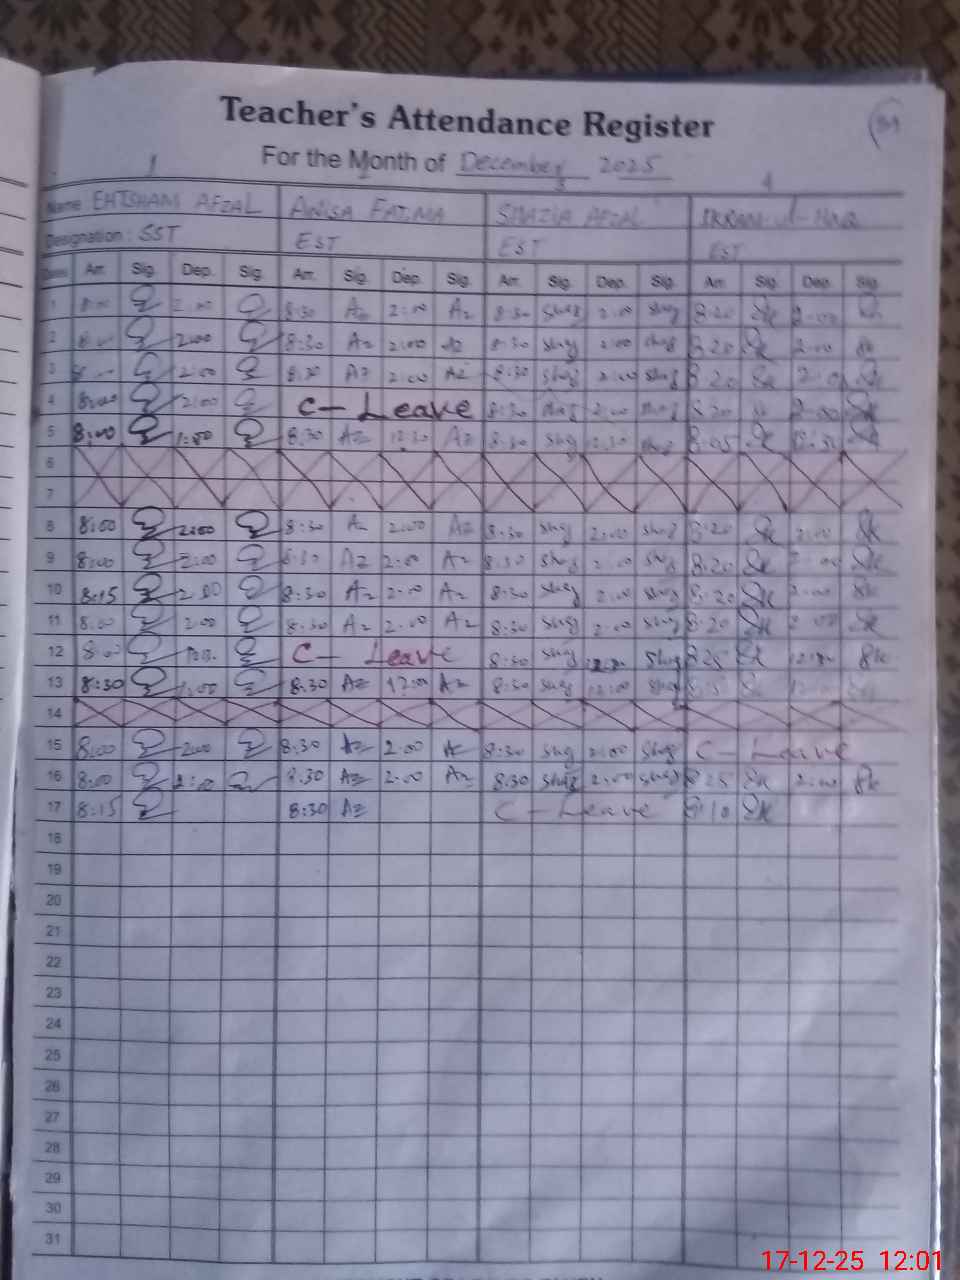 Teacher's Attendance Register
For the Month of December 2025
1 3 4
Name EHTSHAM AFZAL ANISA FATIMA SHAZIA AFZAL IKRAM-ul-HAQ
Designation : SST EST EST EST
Dates Arr. Sig. Dep. Sig. Arr. Sig. Dep. Sig. Arr. Sig. Dep. Sig. Arr. Sig. Dep. Sig.
1 8:00 2:00 8:30 Az 2:00 Az 8:30 shag 2:00 shag 8:20 Sk 2:00
2 2:00 8:30 Az 2:00 Az 8:30 shag 2:00 shag 8:20 Sk 2:00 Sk
3 2:00 8:30 Az 2:00 Az 8:30 shag 2:00 shag 8:20 Sk 2:00 Sk
4 8:00 2:00 C- Leave 8:30 shag 2:00 shag 8:20 Sk 2:00 Sk
5 8:00 1:00 8:30 Az 12:30 Az 8:30 shag 12:30 shag 8:05 Sk 12:30 Sk
6
7
8 8:00 2:00 8:30 Az 2:00 Az 8:30 shag 2:00 shag 8:20 Sk 2:00 Sk
9 8:00 2:00 8:30 Az 2:00 Az 8:30 shag 2:00 shag 8:20 Sk 2:00 Sk
10 8:15 2:00 8:30 Az 2:00 Az 8:30 shag 2:00 shag 8:20 Sk 2:00 Sk
11 8:00 2:00 8:30 Az 2:00 Az 8:30 shag 2:00 shag 8:20 Sk 2:00 Sk
12 8:00 C- Leave 8:30 shag shag 8:25 Sk Sk
13 8:30 1:00 8:30 Az 12:00 Az 8:30 shag 12:00 shag 8:15 Sk 12:00
14
15 8:00 2:00 8:30 Az 2:00 Az 8:30 shag 2:00 shag C- Leave
16 8:00 2:00 8:30 Az 2:00 Az 8:30 shag 2:00 shag 8:25 Sk 2:00 Sk
17 8:15 8:30 Az C- Leave 8:10 Sk
18
19
20
21
22
23
24
25
26
27
28
29
30
31
17-12-25 12:01